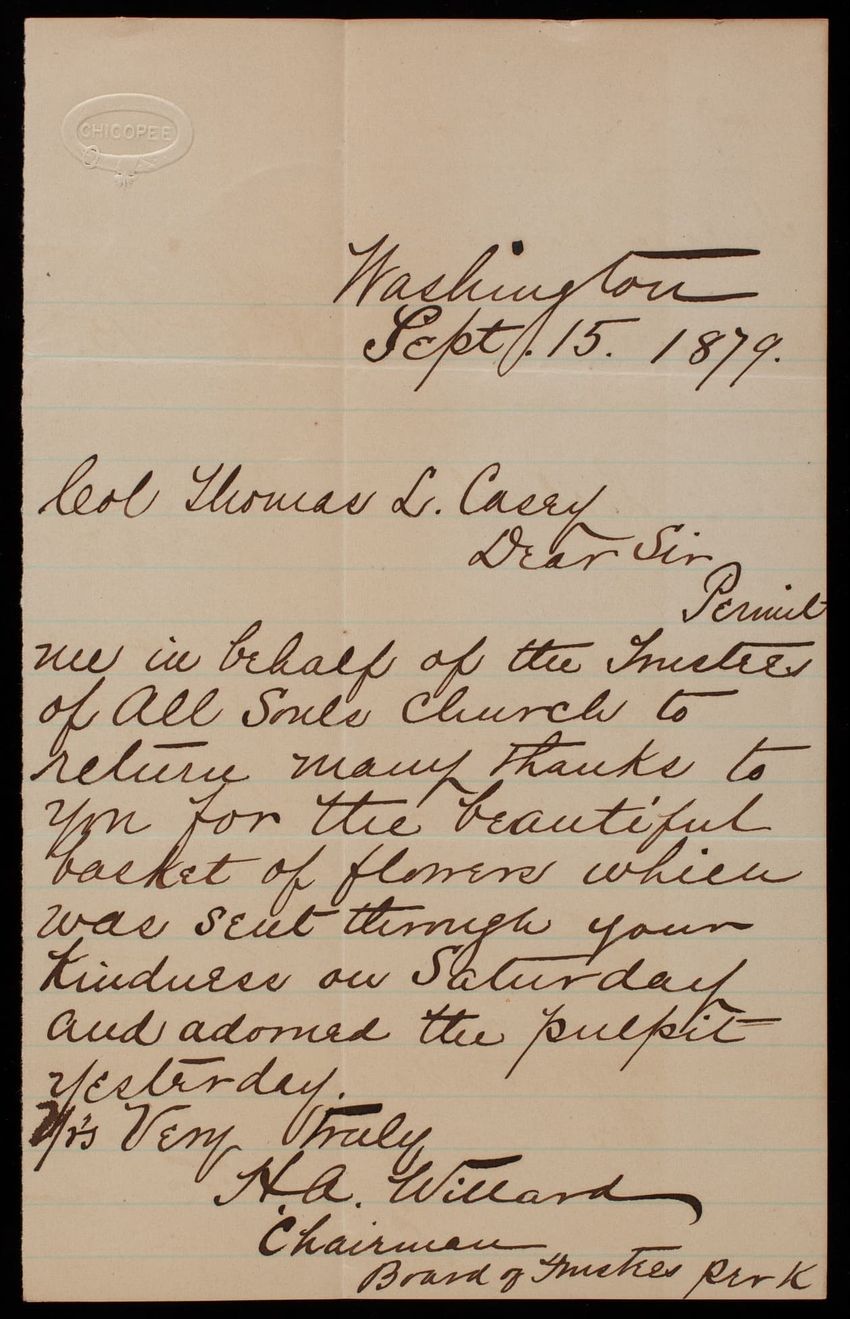 CHICOPEE
Washington
Sept. 15. 1879.
Col Thomas L. Casey
Dear Sir
Permit
me in behalf of the Trustees
of All Souls Church to
return many thanks to
you for the beautiful
basket of flowers which
was sent through your
kindness on Saturday
and adorned the pulpit
yesterday.
Yrs Very Truly
H. A. Willard
Chairman
Board of Trustees per K